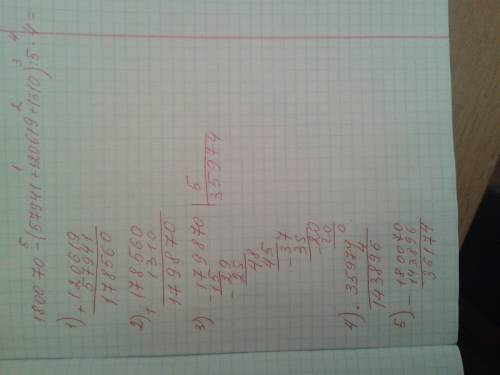 5 1 2 3 4
180070 - (57941 + 120619 + 1310) : 5 · 4 =
1) + 120619
57941
178560
2) + 178560
1310
179870
3) - 179870 | 5
15 | 35974
- 29
25
48
45
- 37
35
20
20
0
4) · 35974
4
143896
5) - 180070
143896
36174